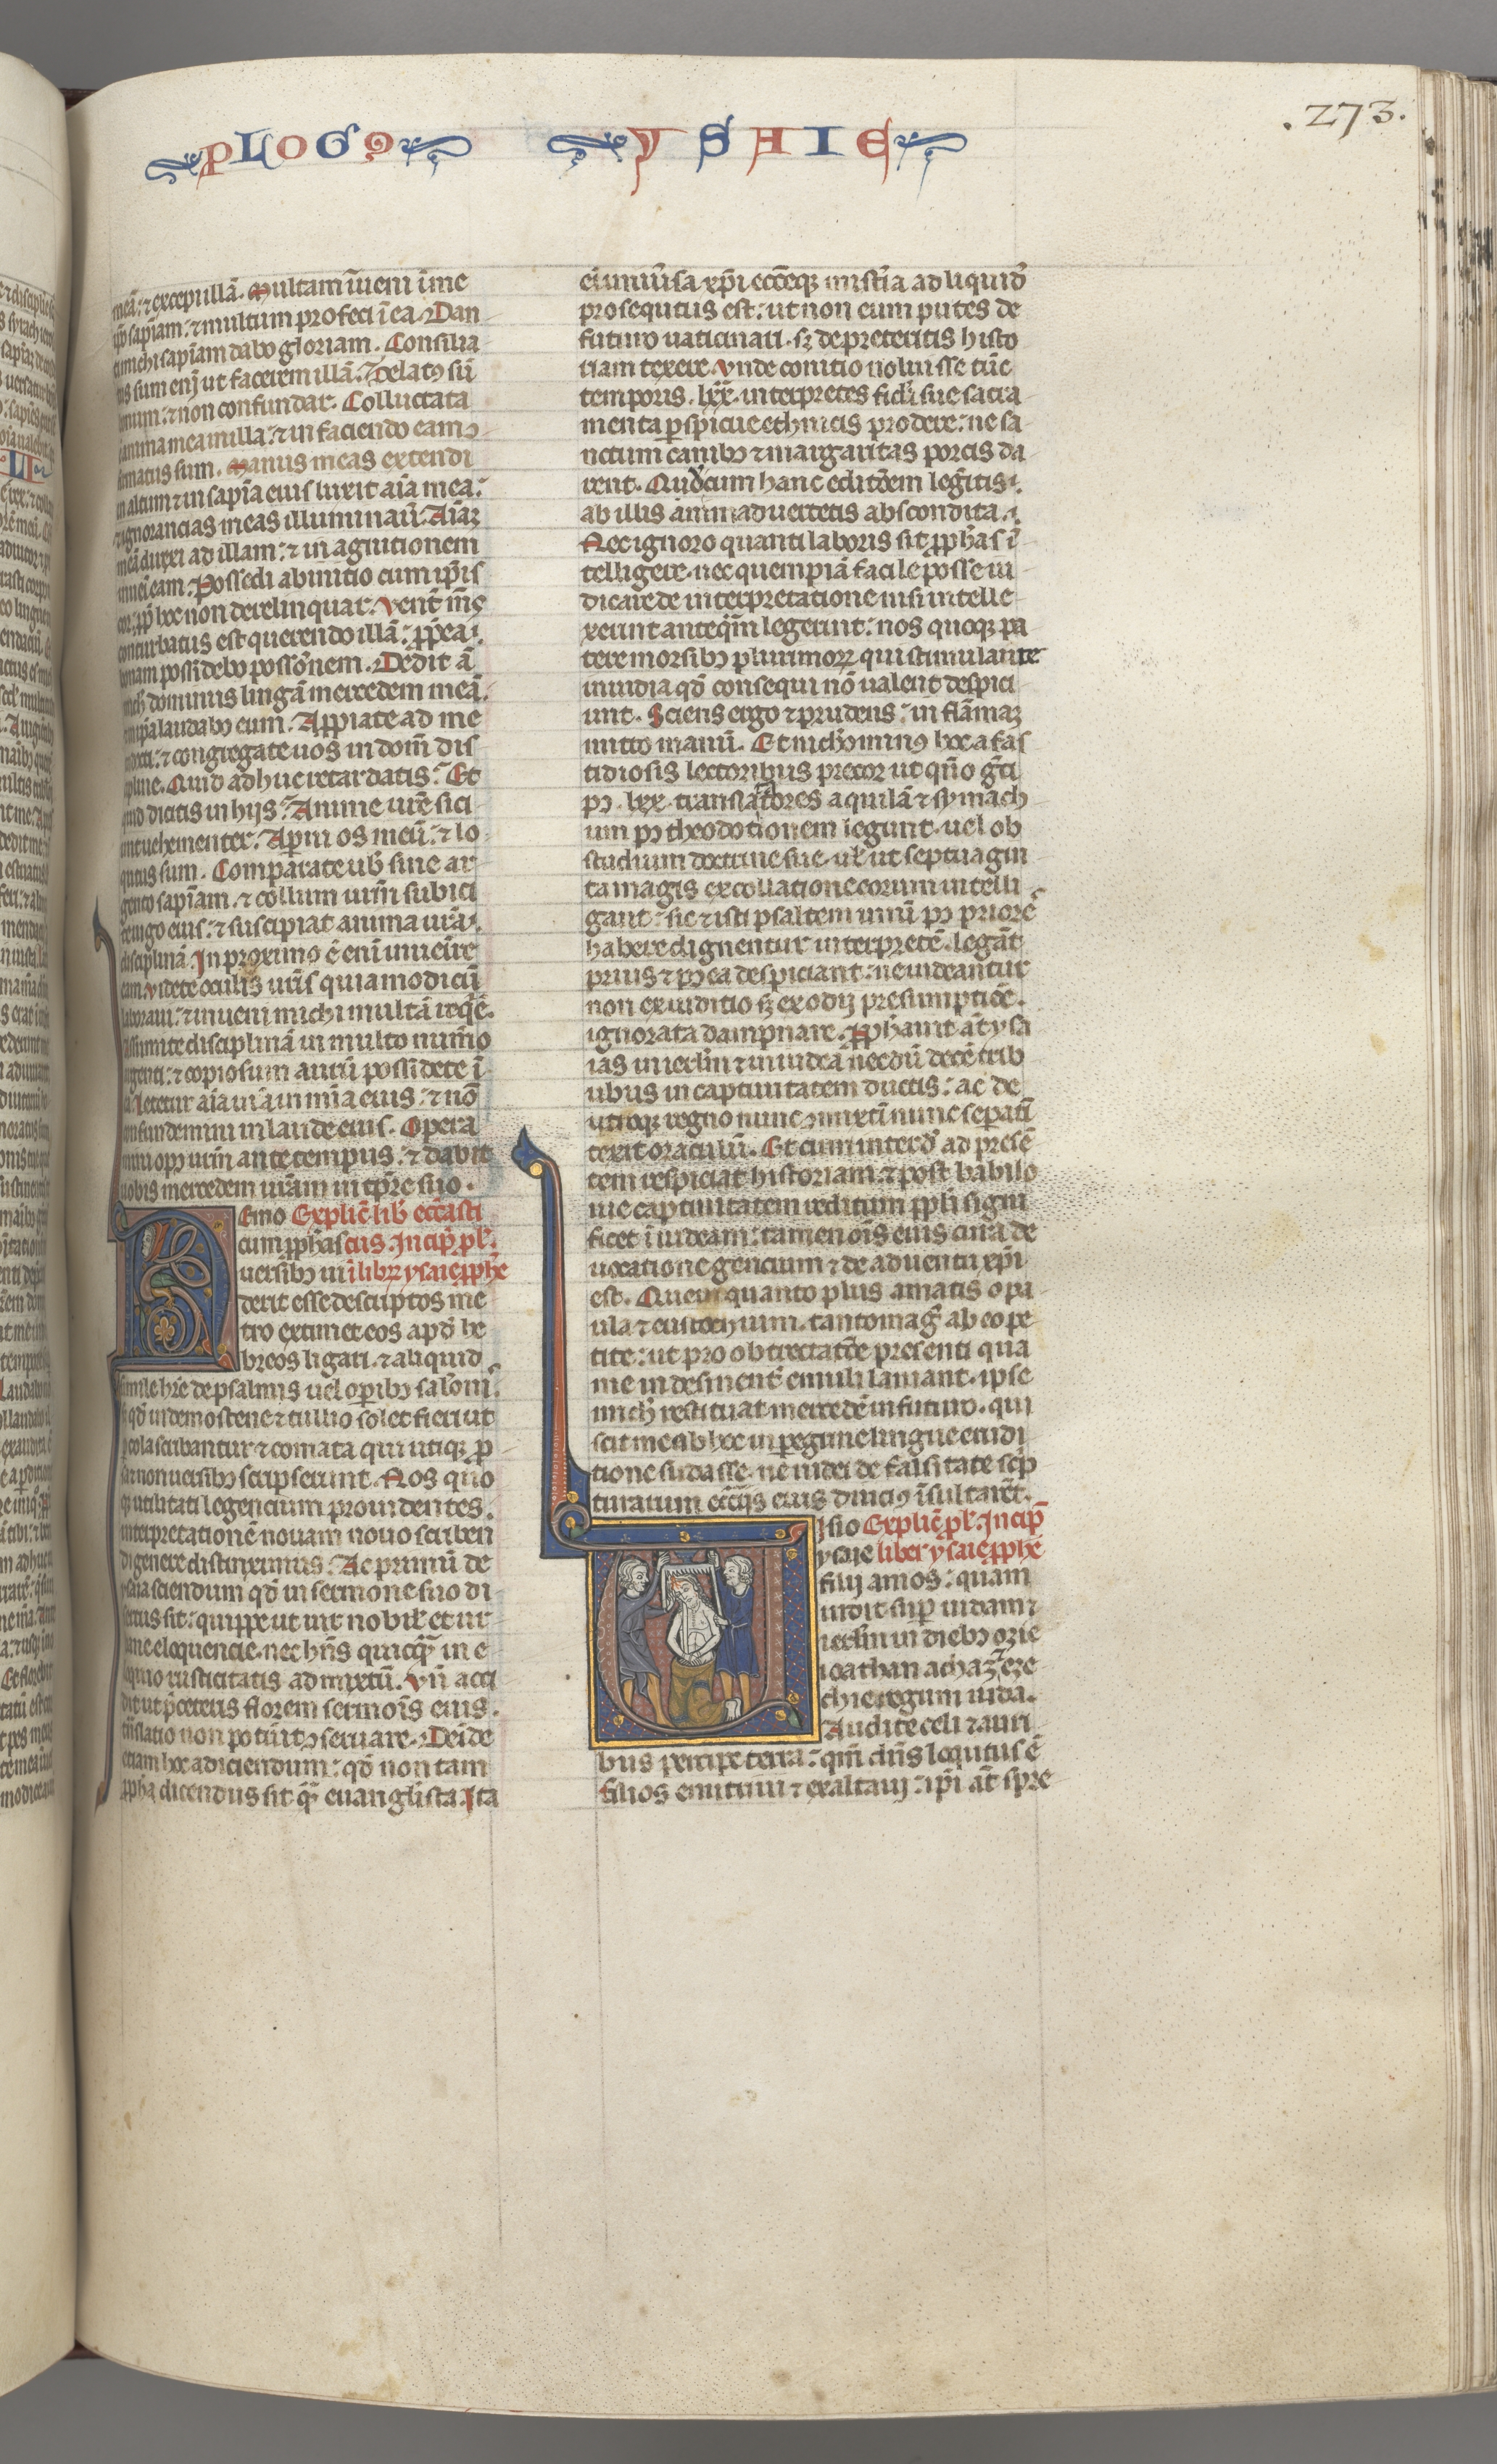 PLOGꝰ YSAIE
.273.
meā: ⁊ excepi illā. Multam īueni ī me
ip̄o sap̄iam: ⁊ multum profeci ī ea. Dan
ti michi sapīam dabo gloriam. Consilia
tus sum enī ut facerem illā. Zelatꝰ sū
bonum: ⁊ non confundar. Colluctata
ē anima mea in illa: ⁊ in faciendo eam ꝯ
firmatus sum. Manus meas extendi
in altum ⁊ in sapīa eius luxit aīa mea:
⁊ ignorancias meas illuminauit. Aīaꝫ
meā duxi ad illam: ⁊ in agnitionem
inueī eam. Possedi ab initio cum ip̄is
cor: ꝓp̄ hoc non derelinquar. Vent̄ m̄s
conturbatus est querendo illā: ꝓp̄ea
bonam possidebo possōnem. Dedit ā
mich dominus lingā mercedem meā:
in ip̄a laudabo eum. Appiate ad me
indocti: ⁊ congregate uos in dom̄ dis
cipline. Quid adhuc retardatis: Et
quid dicitis in hijs: Anime ur̄e sici
unt uehementer. Aperui os meū: ⁊ lo
qutus sum. Comparate uob̄ sine ar
gento sapīam. ⁊ collum ur̄m subici
te iugo eius: ⁊ suscipiat anima ur̄a
disciplinā. In proximo ē enī inuenire
eam. Videte oculis ur̄is quia modicū
laboraui: ⁊ inueni michi multā reqē.
Assumite disciplinā in multo num̄o
argenti: ⁊ copiosum aurū possidete ī
ea. Letetur aīa ur̄a in mīa eius: ⁊ nō
confundemini in laude eius. Opera
mini opꝰ ur̄m ante tempus: ⁊ dabit
uobis mercedem ur̄am in tp̄re suo.
Nemo Explic̄ lib̄ ecc̄asti
cum ꝓphas cus. Incip̄ ꝓl.
uersibꝰ uī ī librꝫ ysaie ꝓphē
derit esse descriptos me
tro extimet eos apd̄ he
breos ligari. ⁊ aliquid
simile hr̄e de psalmis uel oꝑibꝰ salom̄.
s; qd̄ in demostene ⁊ tullio solet fieri ut
ꝑ cola scribantur ⁊ comata qui utiqꝫ ꝓ
sa ⁊ non uersibꝰ scripserunt. Nos quo
qꝫ utilitati legencium prouidentes.
interpretationē nouam nouo scriben
di genere distinximus. Ac primū de
ysaia sciendum qd̄ in sermone suo di
sertus sit: quippe ut uir nobilꝭ et ur
bane eloquencie. nec hn̄s quicqꝫ in e
loquio rusticitatis admixtū. Vn̄ acci
dit ut p̄ ceteris florem sermoīs eius.
tn̄slatio non potūit ꝯseruare. Deīde
etiam hoc adiciendum: qd̄ non tam
ꝓpha dicendus sit qm̄ euanglīsta. Ita
eī uniūsa xp̄i ecc̄eqꝫ mistīa ad liquid̄
prosequtus est: ut non eum putes de
futuro uaticinari. sꝫ de preteritis histo
riam texere. Vnde conitio noluisse tūc
temporis. lxx. interpretes fidī sue sacra
menta ꝑspicue ethnicis prodere: ne sa
nctum canibꝰ ⁊ margaritas porcis da
rent. Que cum hanc editōem leḡitis:
ab illis animaduertetis abscondita.
Nec ignoro quanti laboris sit ꝓphas ī
telligere. nec quempiā facile posse iu
dicare de interpretatione nisi intelle
xerunt anteqm̄ legerint: nos quoqꝫ pa
tere morsibꝰ plurimorꝫ qui stimulante
inuidia qd̄ consequi nō ualent despici
unt. Sciens ergo ⁊ prudens: in flāmaꝫ
mitto manū. Et nichominꝰ hoc a fas
tidiosis lectoribus precor ut qn̄o gr̄ci
pꝰ. lxx. translatores aquilā ⁊ symach
um pꝰ theodotionem legunt. uel ob
studium doctrine sue. ul̄ ut septuagin
ta magis ex collatione eorum intelli
gant: sic ⁊ isti psaltem unū pꝰ priorē
habere dignentur interpretē. legāt
prius ⁊ pꝰea despiciant: ne uideantur
non ex iuditio sꝫ ex odij presumptiōe.
ignorata dampnare. Ꝓphauit āt ysa
ias in ierlm̄ ⁊ in iudea necdū decē trib
ubus in captiuitatem ductis: ac de
utroqꝫ regno nunc ꝯmixtī nunc sepatī
texit oraculū. Et cum interd̄ ad presē
tem respiciat historiam. ⁊ post babilo
nie captiuitatem reditum ꝓpl̄i signi
ficet ī iudeam: tamen oīs eius cura de
uocatione gencium ⁊ de aduentu xp̄i
est. Quem quanto plus amatis o pa
ula ⁊ eustochium. tanto maḡ ab eo pe
tite: ut pro obtrectatōe presenti qua
me indesinent̄ emuli laniant. ipse
mich̄ restituat mercedē in futuro. qui
scit me ob hoc in ꝑegrine lingue erudi
tione sudasse. ne iudei de falsitate sc̄ip
turarum ecc̄ijs eius diuciꝰ īsultarēt.
Visio Explic̄ ꝓl. Incip̄
ysaie liber ysaie ꝓphē
filij amos: quam
uidit sup̄ iudam ⁊
ierlm̄ in diebꝰ ozie
ioathan achaz ⁊ eze
chie regum iuda.
Audite celi ⁊ auri
bus percipe terra: qm̄ dn̄s loqutus ē
filios enutriui ⁊ exaltaui: ip̄i āt spre